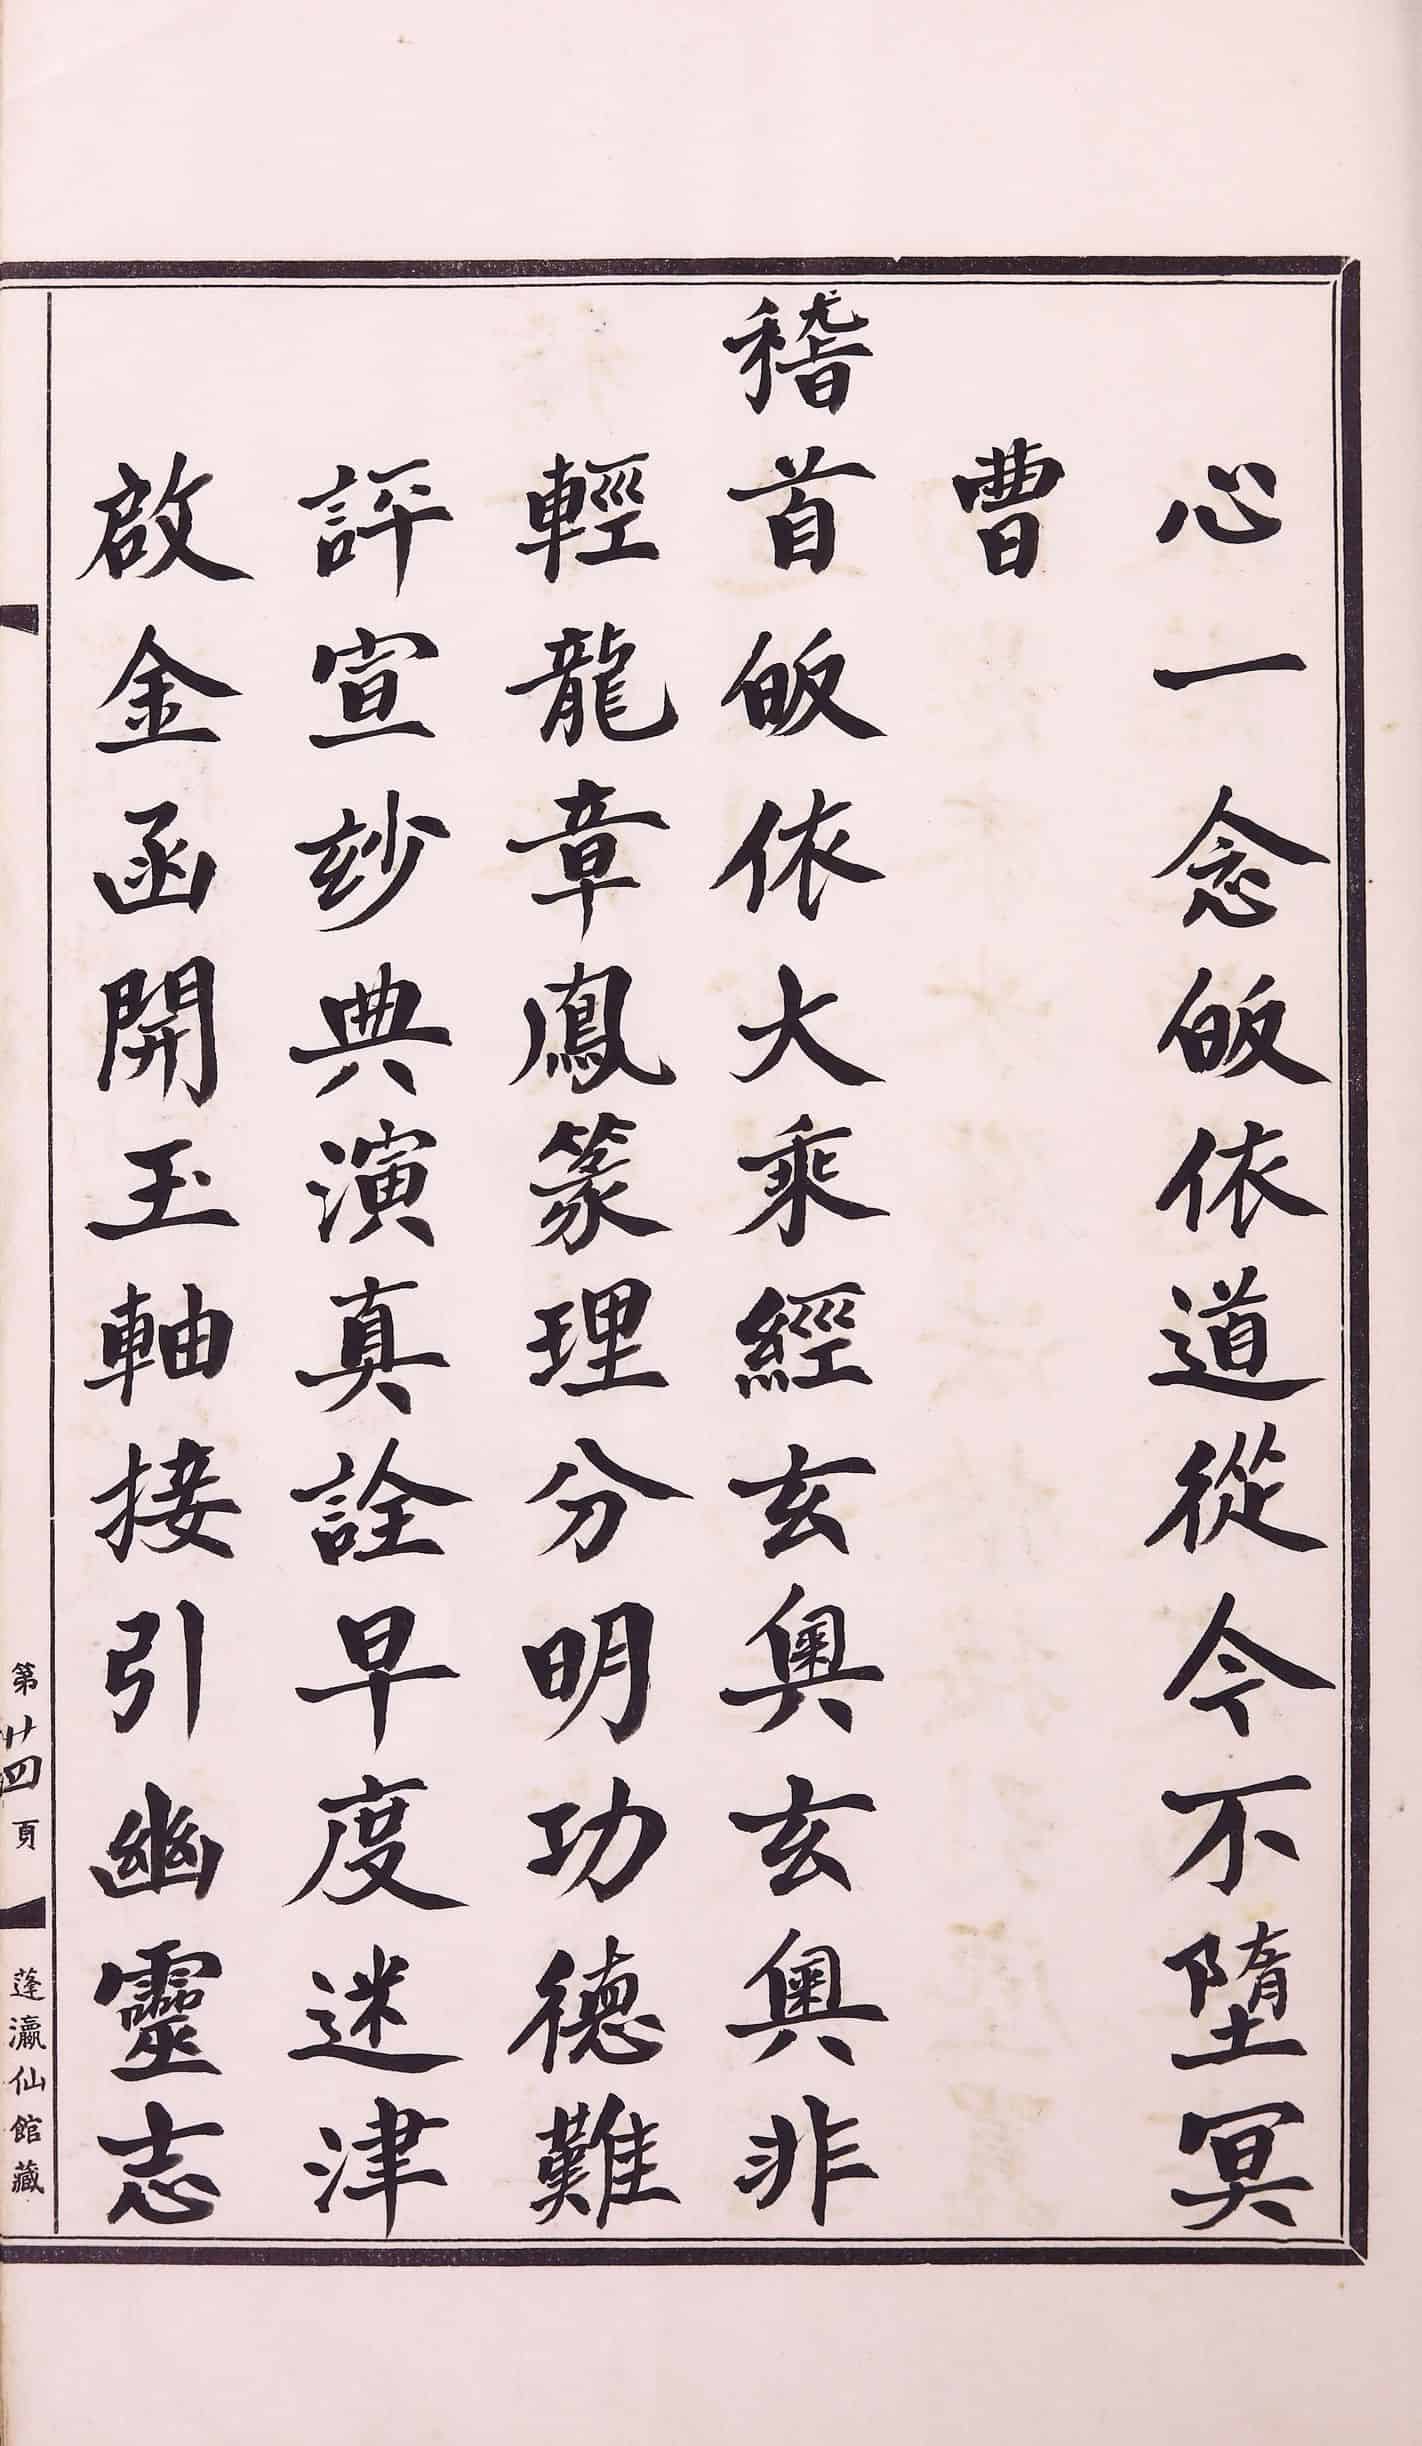 心一念皈依道從今不墮冥
曹
稽首皈依大乘經玄奧玄奧非
輕龍章鳳篆理分明功德難
評宣玅典演真詮早度迷津
啟金函開玉軸接引幽靈志
第廿四頁
蓬瀛仙館藏